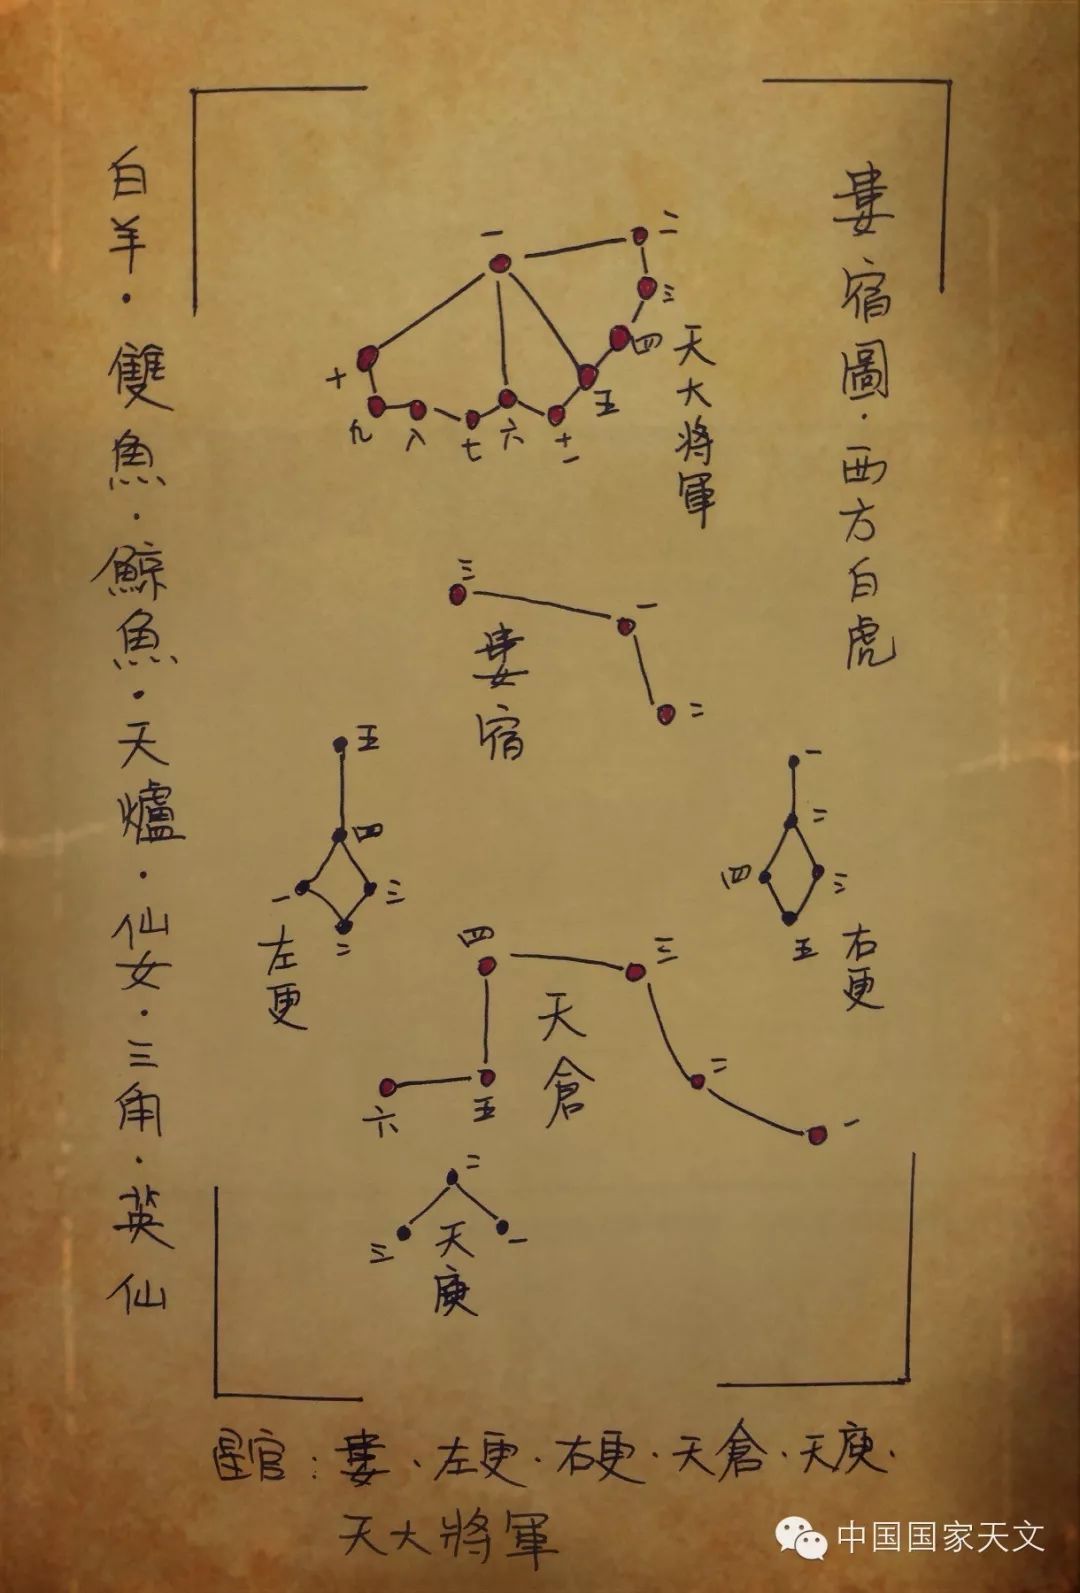 婁宿圖·西方白虎
白羊·雙魚·鯨魚·天爐·仙女·三角·英仙
一
二
三
四
五
六
七
八
九
十
十一
天大將軍
三
一
二
婁宿
五
四
一
三
二
左更
一
二
四
三
五
右更
四
三
二
一
五
六
天倉
二
三
一
天庚
星官：婁·左更·右更·天倉·天庚·
天大將軍
中国国家天文